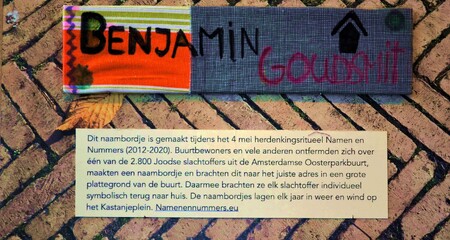 BENJAMIN
GOUDSMIT
Dit naambordje is gemaakt tijdens het 4 mei herdenkingsritueel Namen en
Nummers (2012-2020). Buurtbewoners en vele anderen ontfermden zich over
één van de 2.800 Joodse slachtoffers uit de Amsterdamse Oosterparkbuurt,
maakten een naambordje en brachten dit naar het juiste adres in een grote
plattegrond van de buurt. Daarmee brachten ze elk slachtoffer individueel
symbolisch terug naar huis. De naambordjes lagen elk jaar in weer en wind op
het Kastanjeplein. Namenennummers.eu